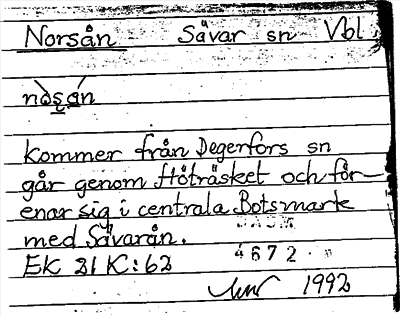 Norsån Sävar sn Vbl
nòs̩án
kommer från Degerfors sn
går genom Höträsket och för-
enar sig i centrala Botsmark
med Sävarån.
DAUM
EK 21 K:62 4672
1992